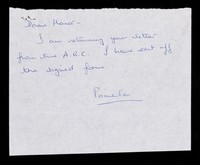 Dear Hans -
I am returning your letter
from the A.B.C. I have sent off
the signed form.
Pamela